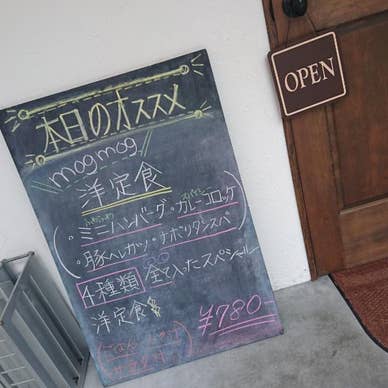 本日のオススメ
mogmog
洋定食
・ミニハンバーグ・カレーコロッケ
・豚ヒレカツ・ナポリタンスパ
4種類 全て入ったスペシャル
洋定食
¥780-
OPEN